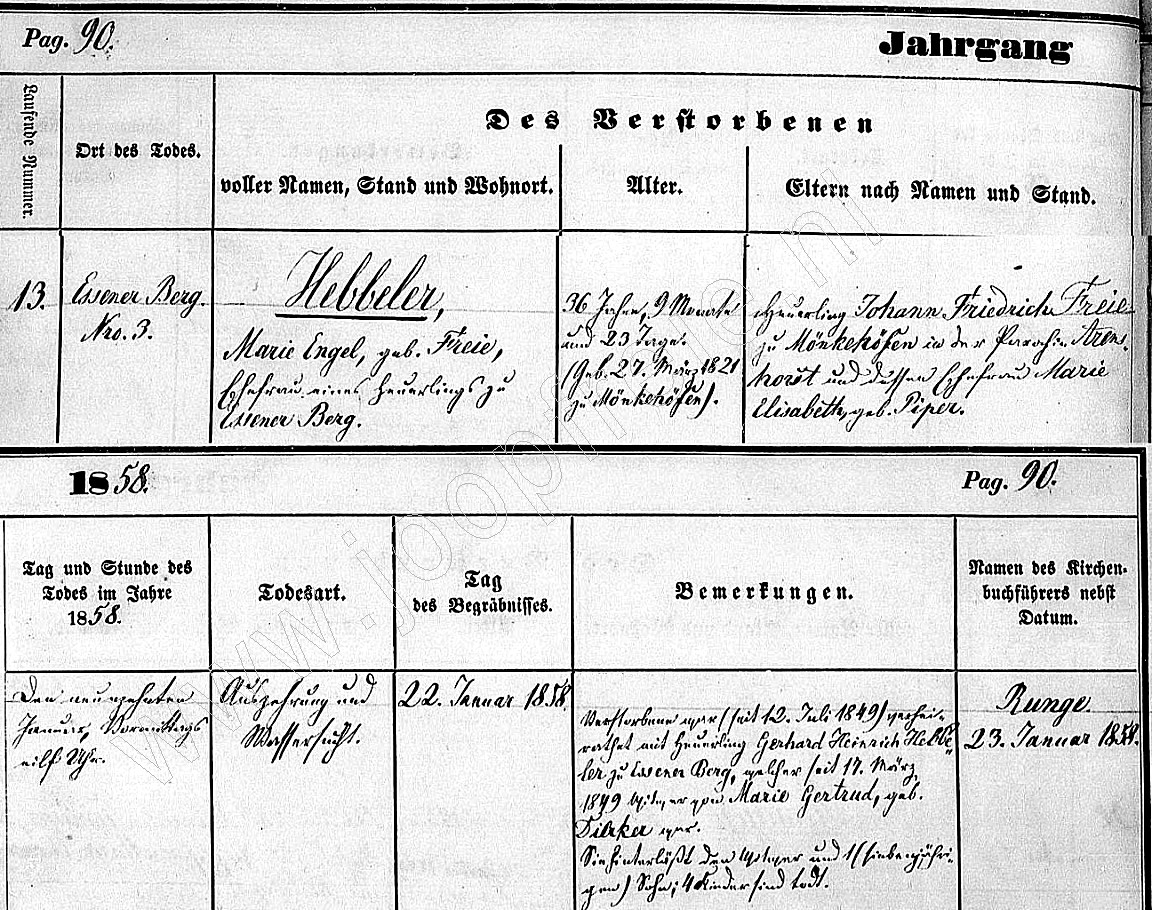 Pag. 90.
Jahrgang
Laufende Nummer.
Ort des Todes.
Des Verstorbenen
voller Namen, Stand und Wohnort.
Alter.
Eltern nach Namen und Stand.
13.
Essener Berg.
Nro. 3.
Hebbeler,
Marie Engel, geb. Freie,
Ehefrau eines Heuerlings zu
Essener Berg.
36 Jahre, 9 Monate
und 23 Tage.
(Geb. 27. März 1821
zu Mönkehöfen).
Heuerling Johann Friedrich Freie
zu Mönkehöfen in der Parochie Arens-
horst und dessen Ehefrau Marie
Elisabeth, geb. Piper.
1858.
Pag. 90.
Tag und Stunde des
Todes im Jahre
1858.
Todesart.
Tag
des Begräbnisses.
Bemerkungen.
Namen des Kirchen-
buchführers nebst
Datum.
Den neunzehnten
Januar, Vormittags
eilf Uhr.
Auszehrung und
Wassersucht.
22. Januar 1858.
Verstorbene war (seit 12. Juli 1849) verhei-
rathet mit Heuerling Gerhard Heinrich Hebbe-
ler zu Essener Berg, welcher seit 17. März
1849 Witwer von Marie Gertrud, geb.
Dierker war.
Sie hinterläßt den Witwer und 1 (siebenjähri-
gen) Sohn; 4 Kinder sind todt.
Runge.
23. Januar 1858.